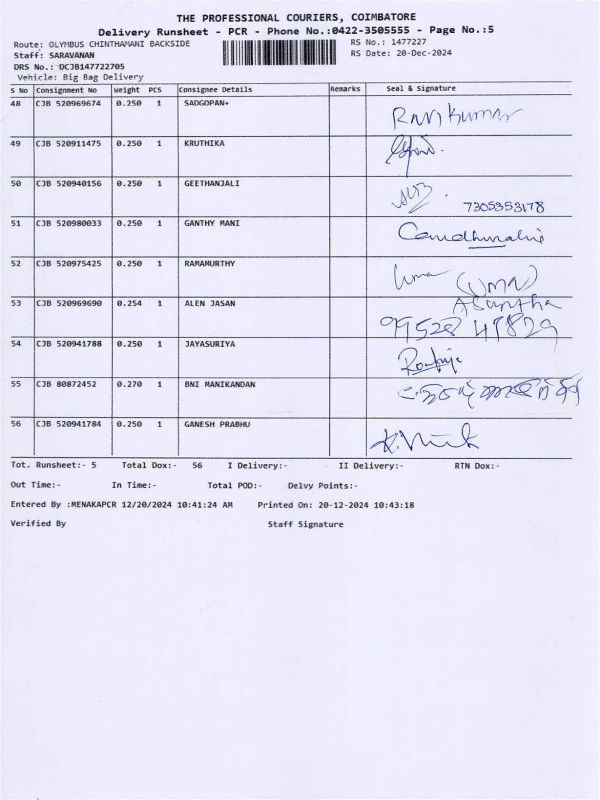 THE PROFESSIONAL COURIERS, COIMBATORE
Delivery Runsheet - PCR - Phone No.:0422-3505555 - Page No.:5
Route: OLYMBUS CHINTHAMANI BACKSIDE RS No.: 1477227
Staff: SARAVANAN RS Date: 20-Dec-2024
DRS No.: DCJB147722705
Vehicle: Big Bag Delivery
S No Consignment No Weight PCS Consignee Details Remarks Seal & Signature
48 CJB 520969674 0.250 1 SADGOPAN+ Ravikumar
49 CJB 520911475 0.250 1 KRUTHIKA
50 CJB 520940156 0.250 1 GEETHANJALI 7305353178
51 CJB 520980033 0.250 1 GANTHY MANI
52 CJB 520975425 0.250 1 RAMAMURTHY Uma (UMA)
53 CJB 520969690 0.254 1 ALEN JASAN
99528 47829
54 CJB 520941788 0.250 1 JAYASURIYA
55 CJB 80872452 0.270 1 BNI MANIKANDAN
56 CJB 520941784 0.250 1 GANESH PRABHU
Tot. Runsheet:- 5 Total Dox:- 56 I Delivery:- II Delivery:- RTN Dox:-
Out Time:- In Time:- Total POD:- Delvy Points:-
Entered By :MENAKAPCR 12/20/2024 10:41:24 AM Printed On: 20-12-2024 10:43:18
Verified By Staff Signature